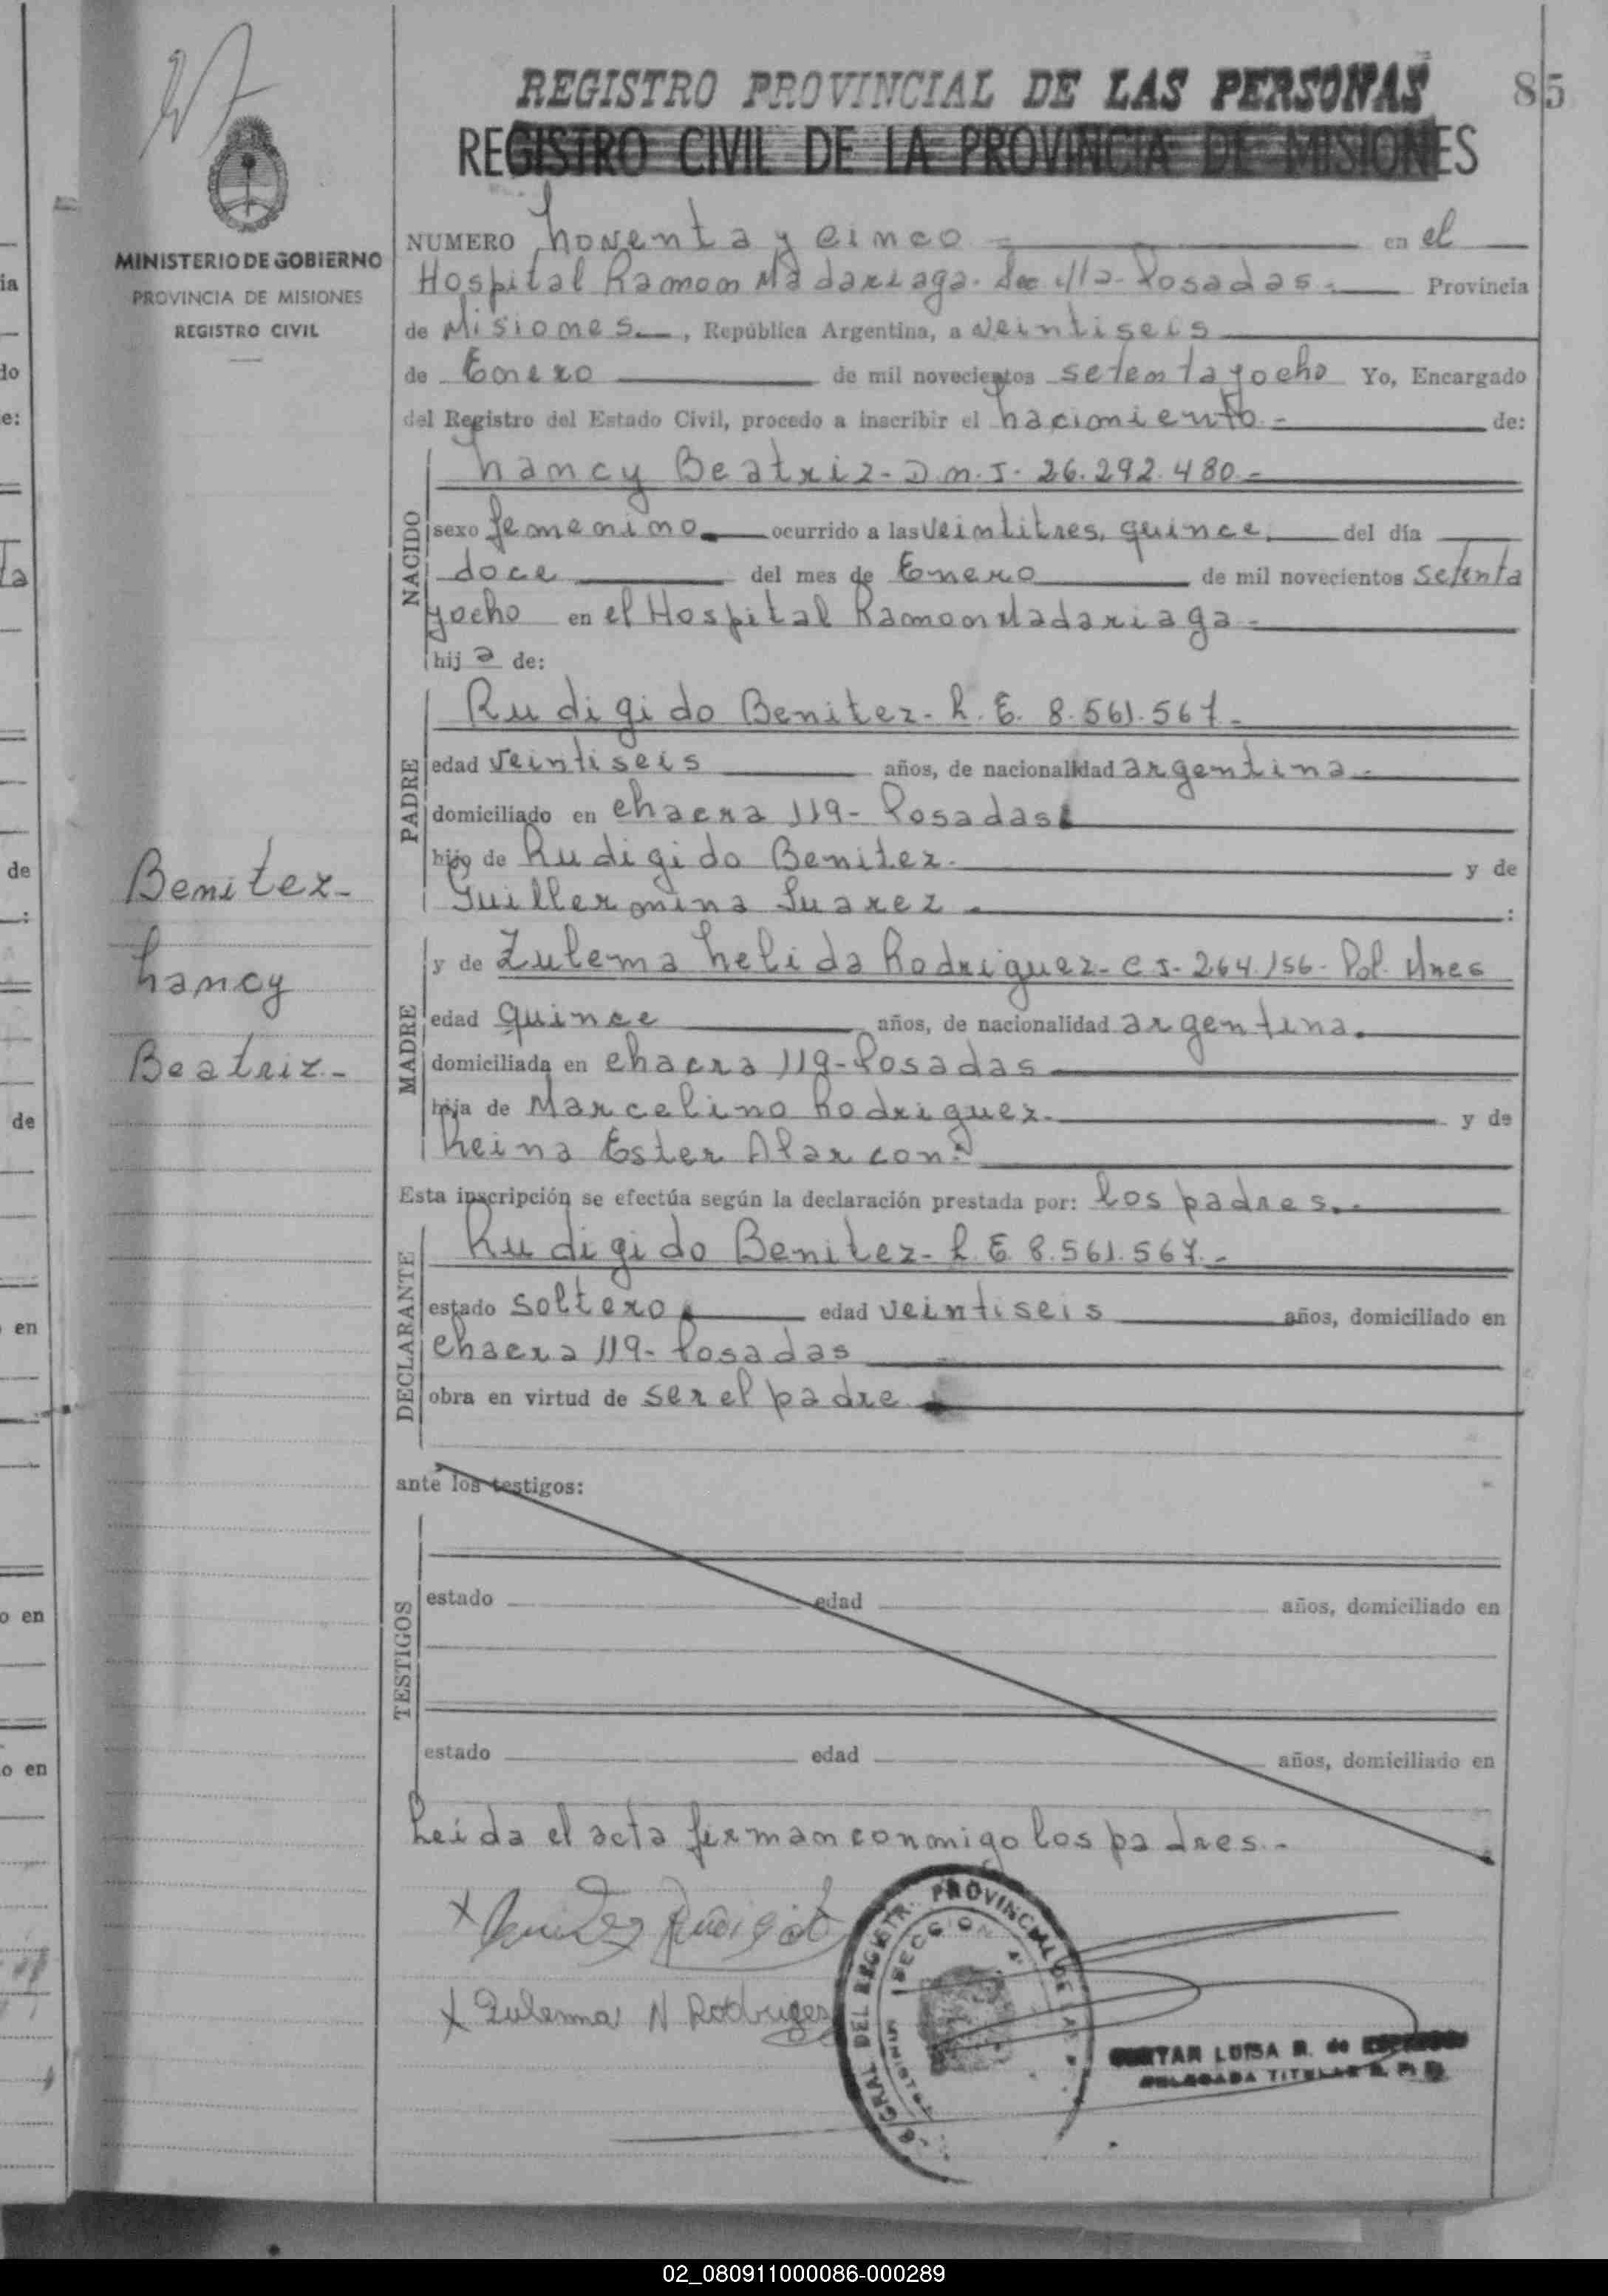 REGISTRO PROVINCIAL DE LAS PERSONAS
85
REGISTRO CIVIL DE LA PROVINCIA DE MISIONES
MINISTERIO DE GOBIERNO
PROVINCIA DE MISIONES
REGISTRO CIVIL
NUMERO noventa y cinco en el
Hospital Ramon Madariaga. Sec. Posadas. Provincia
de Misiones, República Argentina, a veintiseis
de Enero de mil novecientos setenta y ocho Yo, Encargado
del Registro del Estado Civil, procedo a inscribir el nacimiento - de:
NACIDO
Nancy Beatriz - D.N.I - 26.292.480 -
sexo femenino ocurrido a las veintitres, quince, del día
doce del mes de Enero de mil novecientos setenta
y ocho en el Hospital Ramon Madariaga -
hij a de:
PADRE
Rudigido Benitez - L. E. 8.561.567 -
edad veintiseis años, de nacionalidad argentina -
domiciliado en chacra 119 - Posadas
hijo de Rudigido Benitez - y de
Guillermina Suarez - :
MADRE
y de Zulema Nelida Rodriguez - C I - 264.156 - Pol. Mnes
edad quince años, de nacionalidad argentina.
domiciliada en chacra 119 - Posadas
hija de Marcelino Rodriguez - y de
Reina Ester Alarcon -
Esta inscripción se efectúa según la declaración prestada por: los padres. -
DECLARANTE
Rudigido Benitez - L E. 8.561.567. -
estado soltero edad veintiseis años, domiciliado en
chacra 119 - Posadas
obra en virtud de ser el padre
Benitez -
Nancy
Beatriz -
ante los testigos:
TESTIGOS
estado edad años, domiciliado en
estado edad años, domiciliado en
Leida el acta firman conmigo los padres. -
x Benitez Rudigido
x Zulema N Rodriguez
GRAL DEL REGISTR. PROVINCIAL DE LAS P
SECCION 4ª
LUISA R. de
DELEGADA TITULAR R. P. P.
ia
do
e:
ta
de
:
de
en
o en
o en
02_080911000086-000289